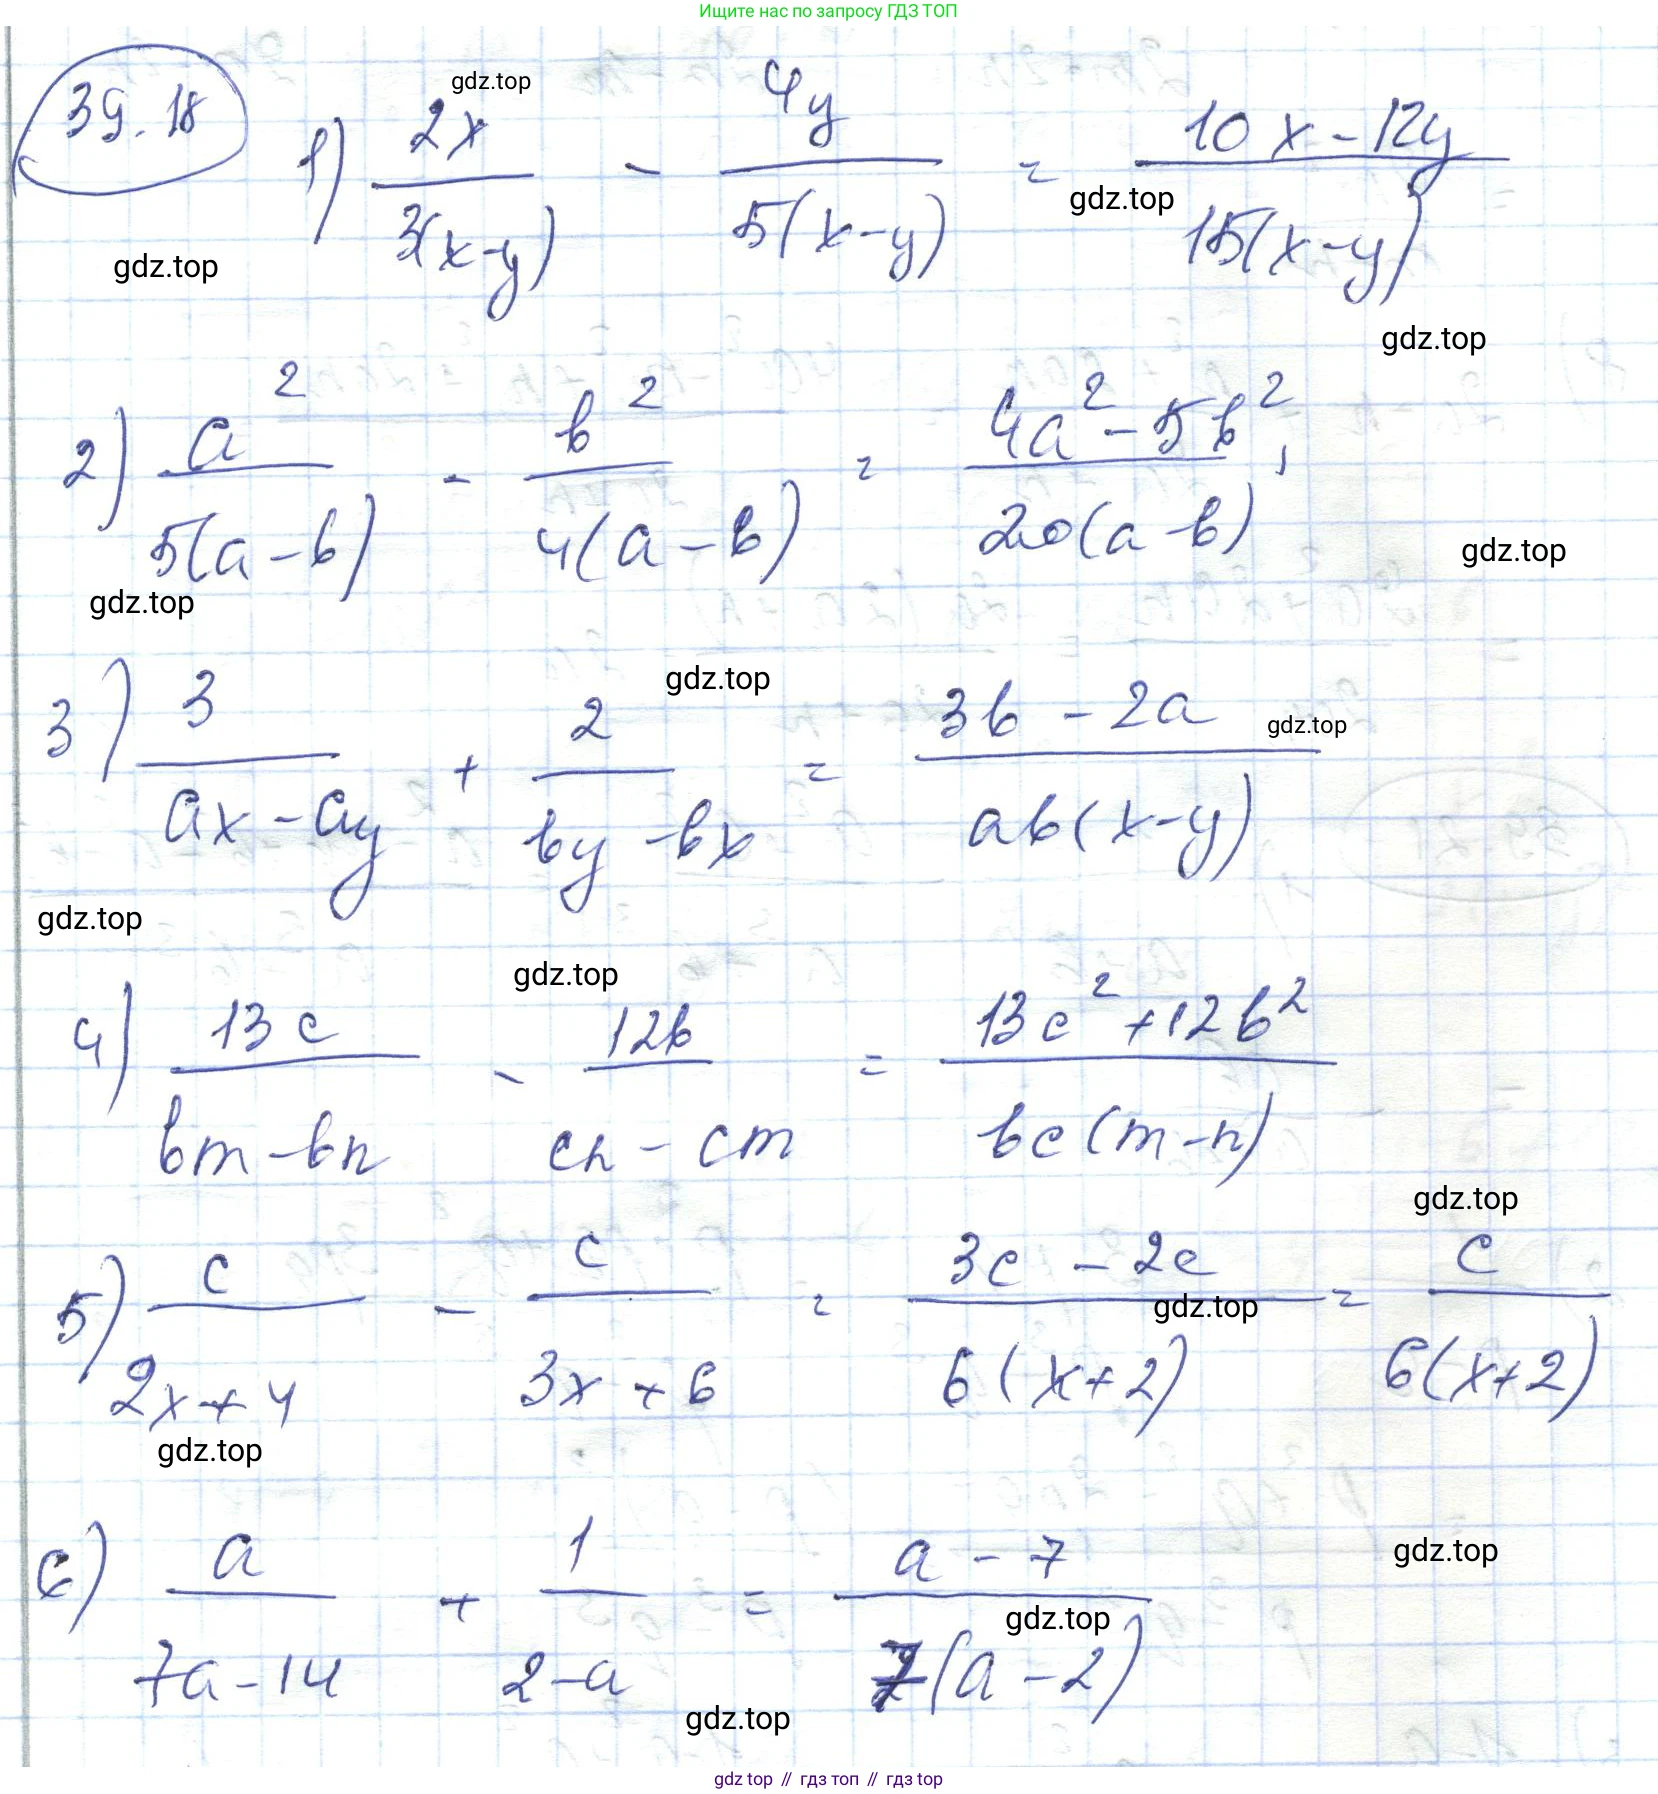 Ищите нас по запросу ГДЗ ТОП
39.18
gdz.top
1) 2x / 3(x-y) - 4y / 5(x-y) = 10x-12y / 15(x-y)
gdz.top
gdz.top
gdz.top
2) a² / 5(a-b) - b² / 4(a-b) = 4a²-5b² / 20(a-b) ;
gdz.top
gdz.top
3) 3 / ax-ay + 2 / by-bx = 3b-2a / ab(x-y)
gdz.top
gdz.top
gdz.top
gdz.top
4) 13c / bm-bn - 12b / cn-cm = 13c²+12b² / bc(m-n)
gdz.top
5) c / 2x+4 - c / 3x+6 = 3c-2c / 6(x+2) = c / 6(x+2)
gdz.top
gdz.top
6) a / 7a-14 + 1 / 2-a = a-7 / 7(a-2)
gdz.top
gdz.top
gdz.top
gdz top // гдз топ // gdz top